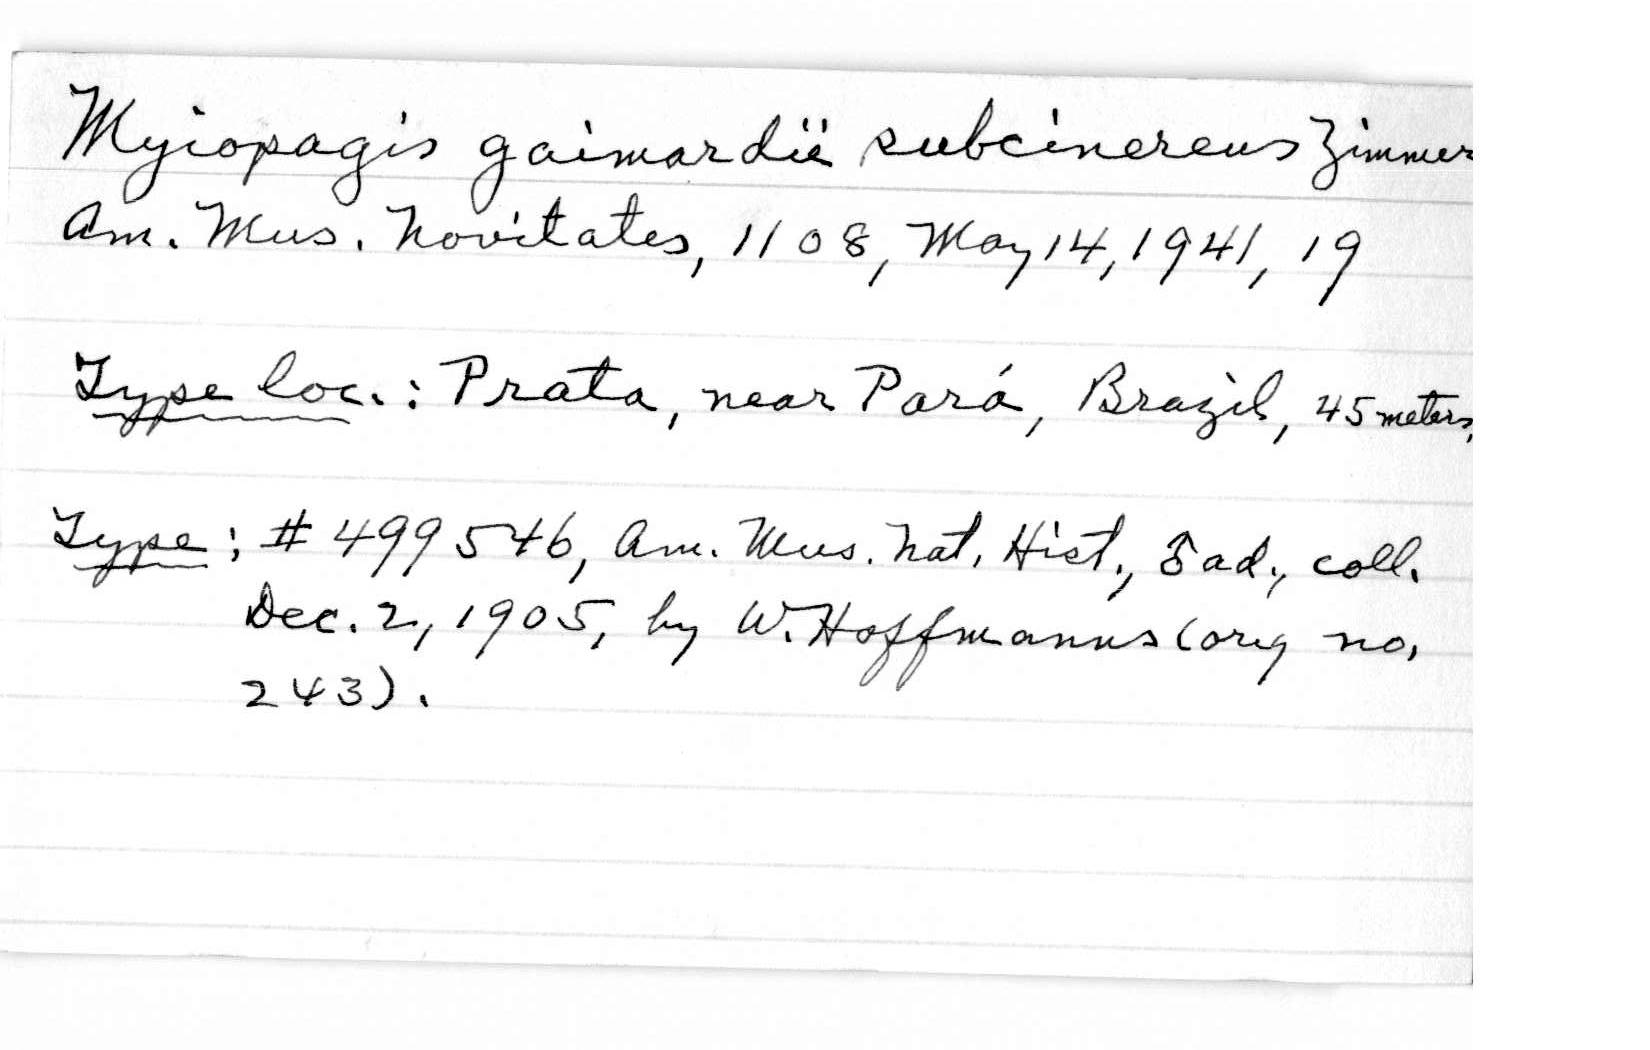 Myiopagis gaimardii subcinereus Zimmer
Am. Mus. Novitates, 1108, May 14, 1941, 19
Type loc.: Prata, near Pará, Brazil, 45 meters,
Type: # 499546, Am. Mus. Nat. Hist., ♂ ad., coll.
Dec. 2, 1905, by W. Hoffmanns (orig no.
243).